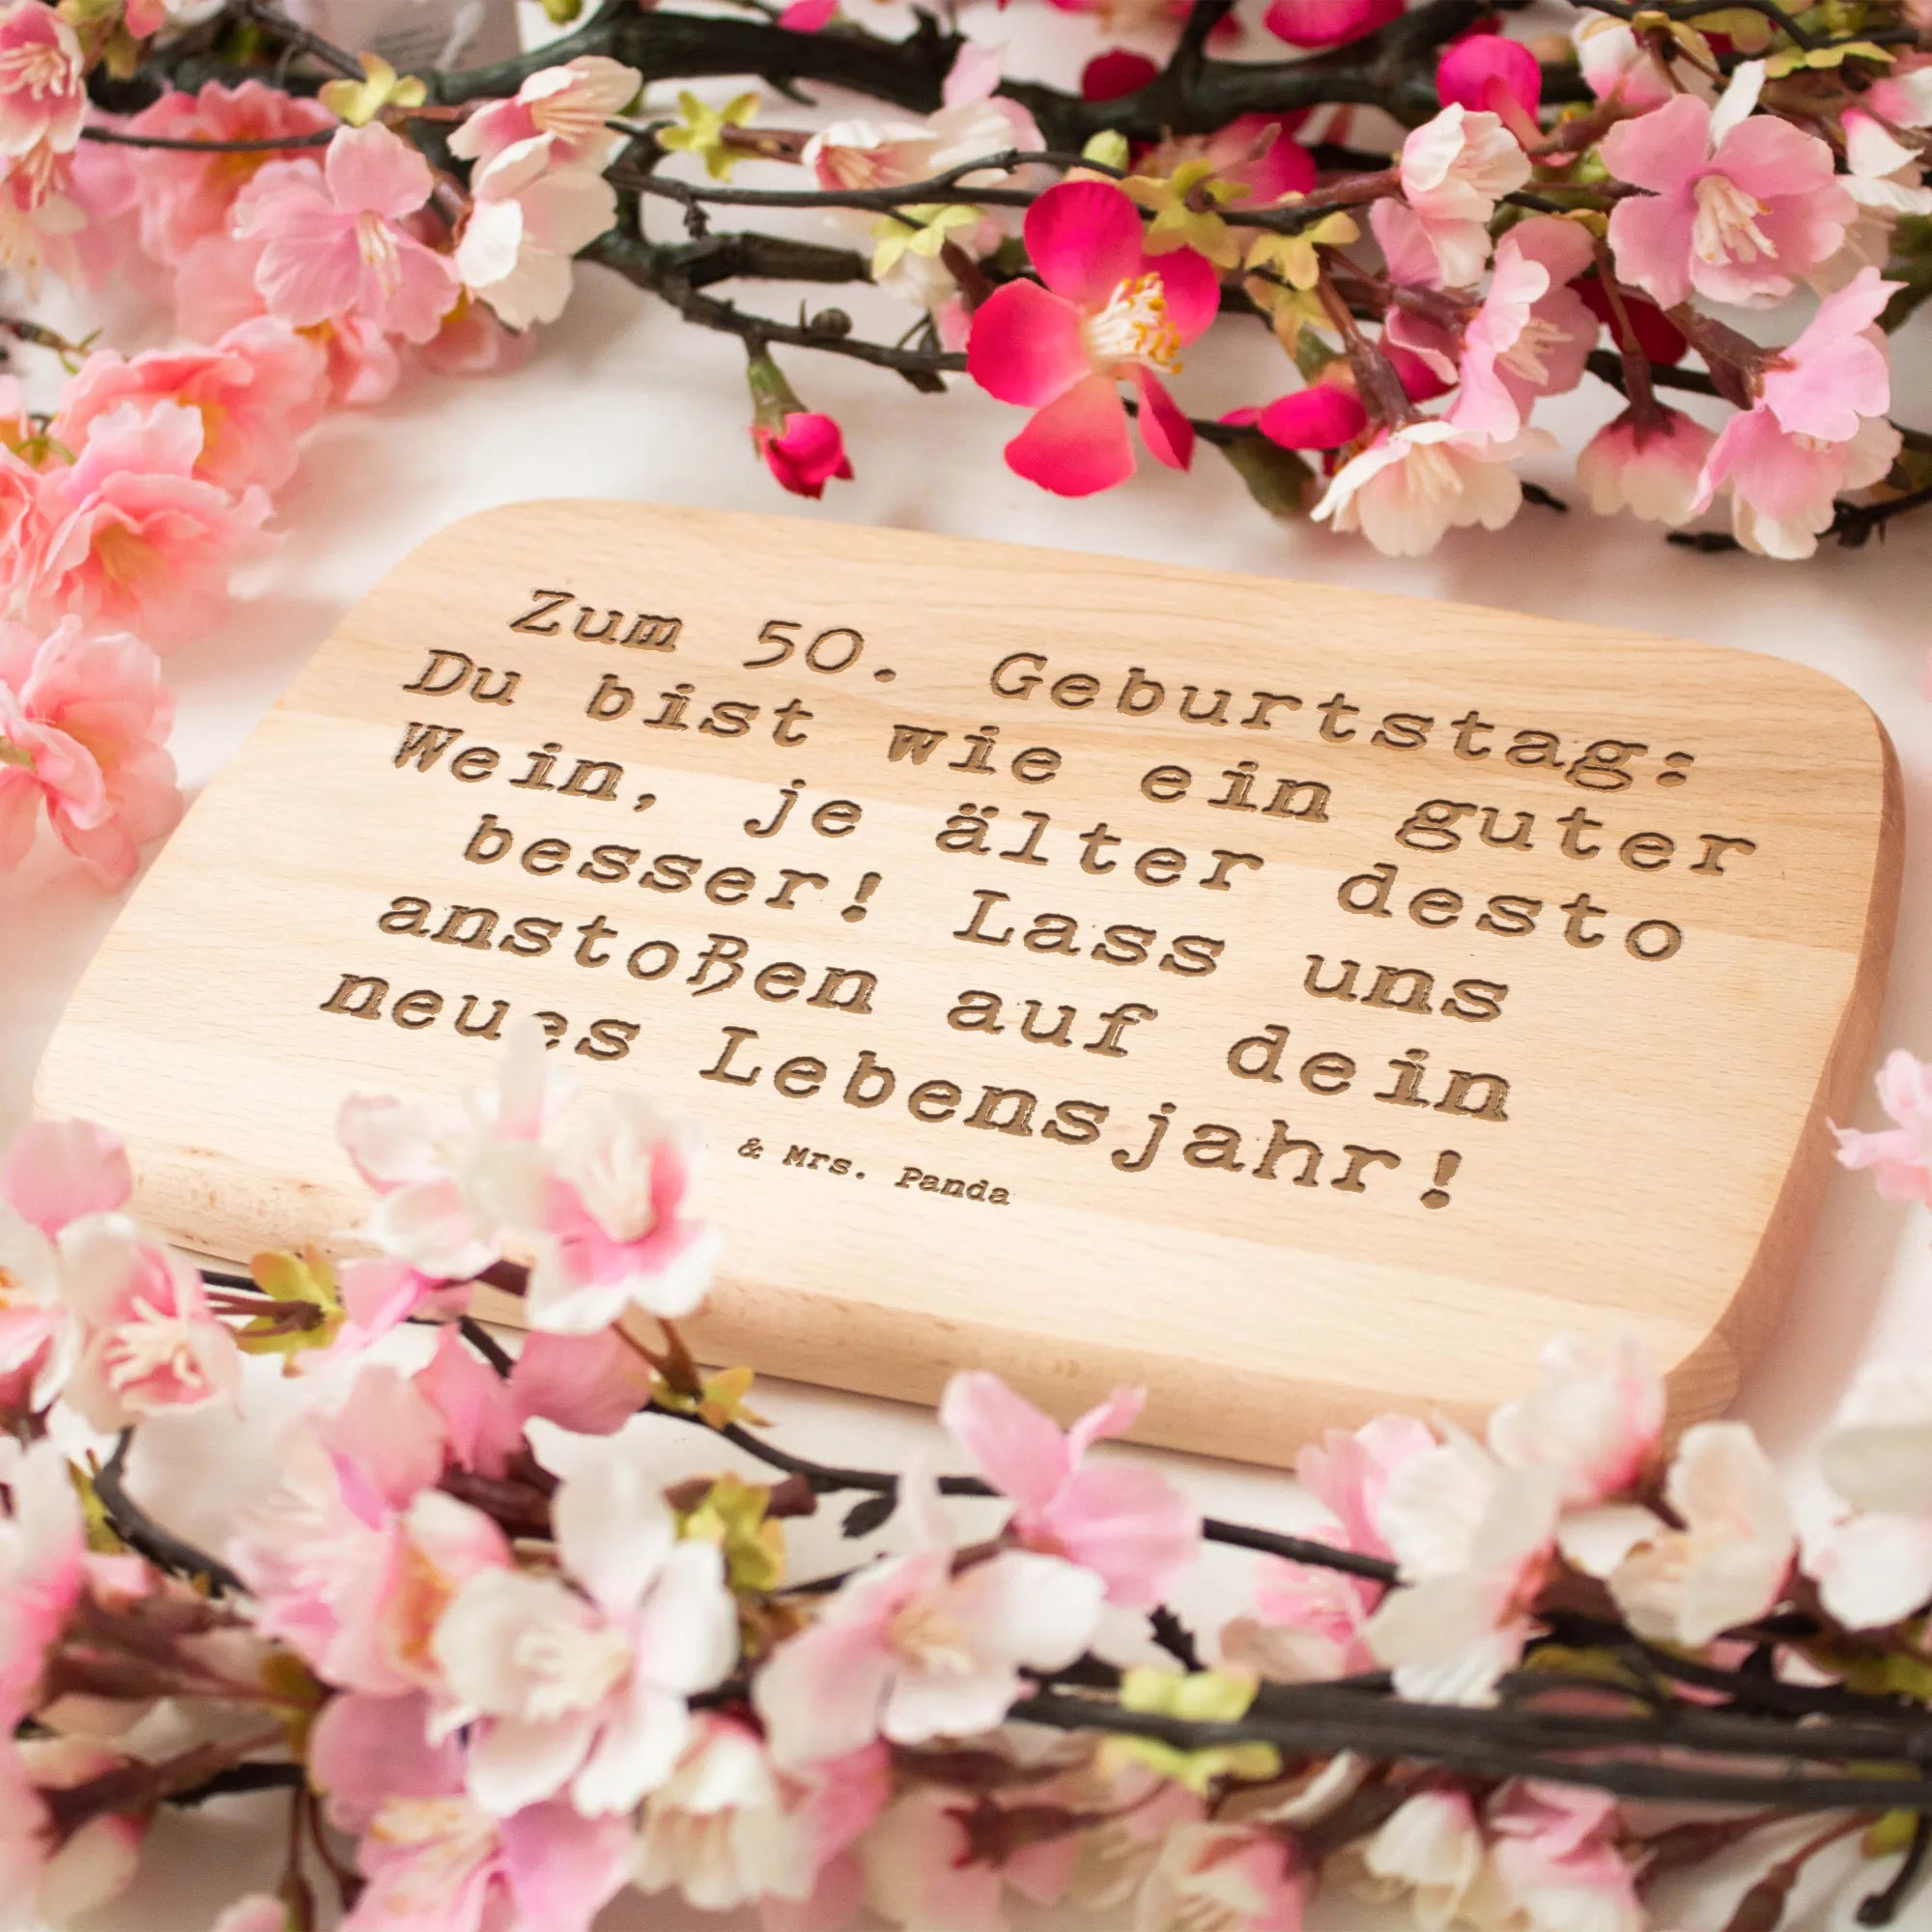 Zum 50. Geburtstag:
Du bist wie ein guter
Wein, je älter desto
besser! Lass uns
anstoßen auf dein
neues Lebensjahr!
& Mrs. Panda